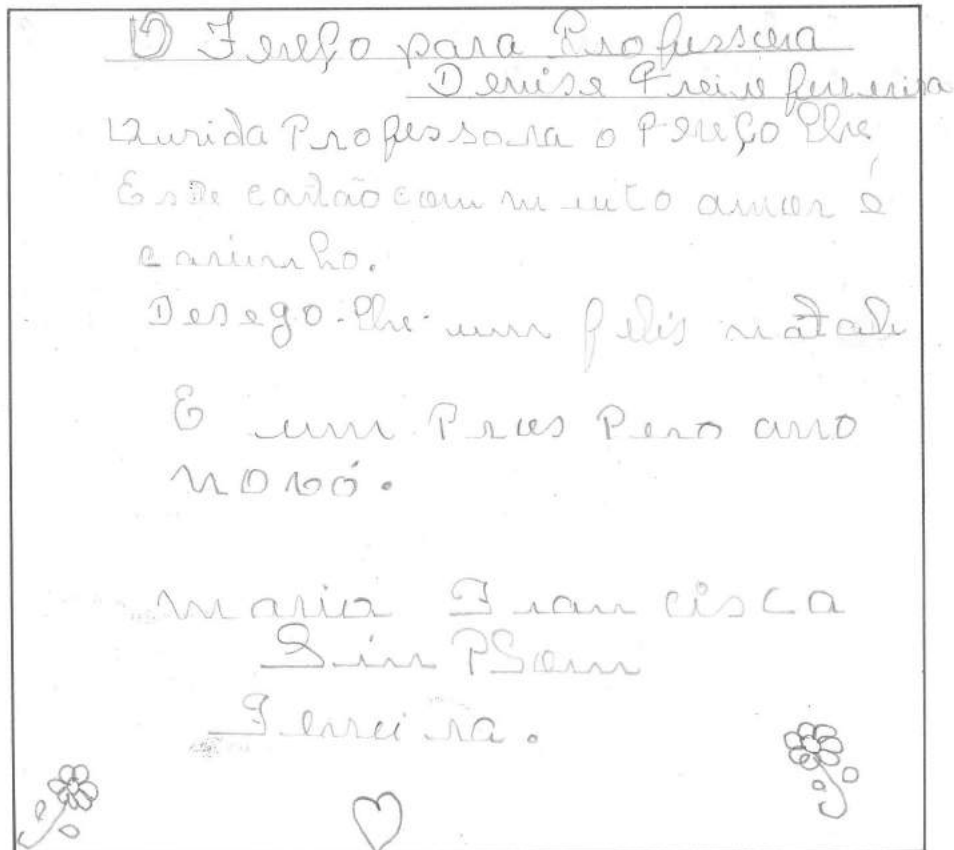 O Ferefo para Professora
Denise Freire ferreira
Qurida Professora o Perefo lhe
Este cartão com muito amor é
carinho.
Desego-lhe-um felis natal
E um Pros Pero ano
novó.
maria Francisca
Sim PSom
Ferreira.